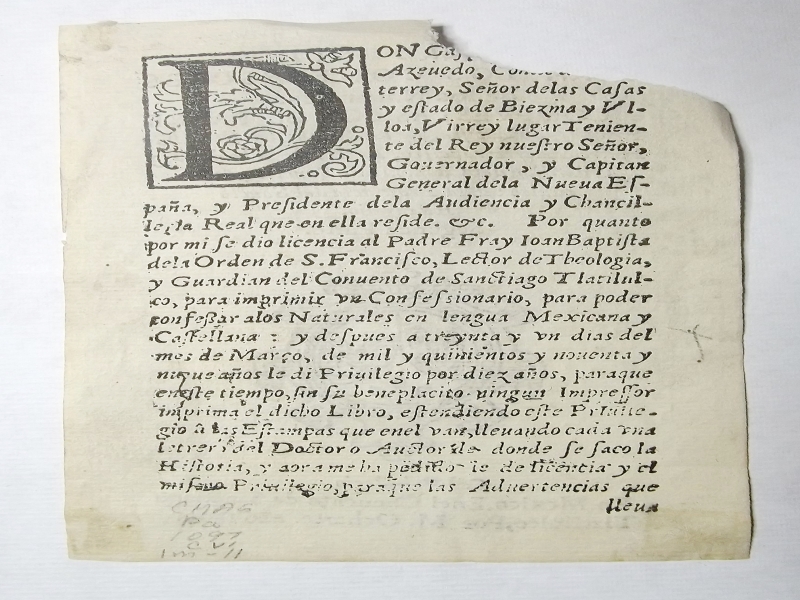 DON
Azeuedo,
terrey, Señor delas Casas
y estado de Biezma y Vl-
loa, Virrey lugar Tenien-
te del Rey nuestro Señor,
Gouernador, y Capitan
General dela Nueua Es-
paña, y Presidente dela Audiencia y Chancil-
leria Real que en ella reside. &c. Por quanto
por mi se dio licencia al Padre Fray Ioan Baptista
dela Orden de S. Francisco, Lector de Theologia,
y Guardian del Conuento de Sanctiago Tlatilul-
co, para imprimir vn Confessionario, para poder
confessar alos Naturales en lengua Mexicana y
Castellana : y despues a treynta y vn dias del
mes de Março, de mil y quinientos y nouenta y
nueue años le di Priuilegio por diez años, paraque
eneste tiempo, sin su beneplacito ningun Impressor
imprima el dicho Libro, estendiendo este Priuile-
gio à las Estampas que enel van, lleuando cada vna
letrero del Doctor o Auctor de donde se saco la
Historia, y aora me ha pedido le de licencia y el
mismo Priuilegio, paraque las Aduertencias que
lleua
1097